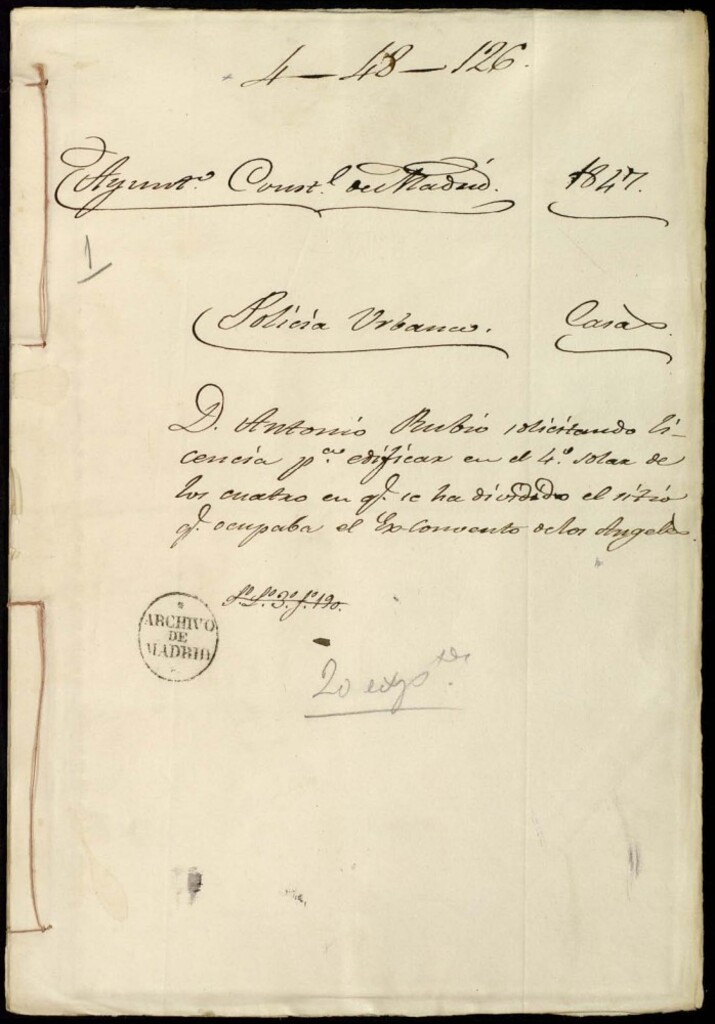 4 — 48 — 126.
Ayunt.º Const.l de Madrid. 1847.
1
Policia Urbana. Casas.
D. Antonio Rubio solicitando li-
cencia p.a edificar en el 4.º solar de
los cuatro en q.e se ha dividido el sitio
q.e ocupaba el Ex-Convento de los Angeles.
3.º f.º 190.
ARCHIVO
DE
MADRID
20 exp.tes